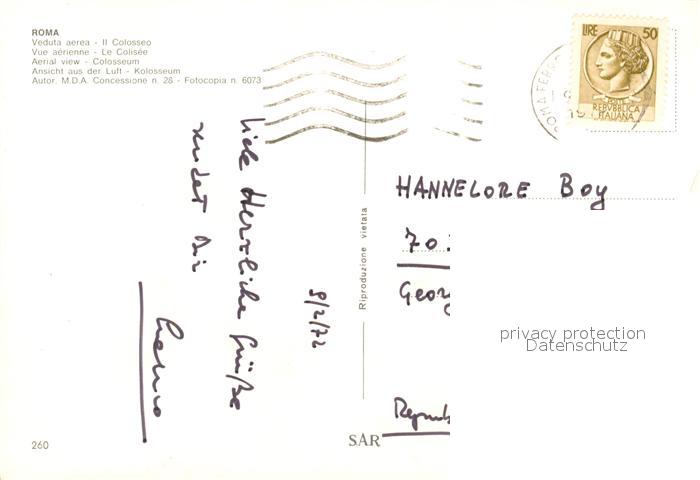 ROMA
Veduta aerea - Il Colosseo
Vue aérienne - Le Colisée
Aerial view - Colosseum
Ansicht aus der Luft - Kolosseum
Autor. M.D.A. Concessione n. 28 - Fotocopia n. 6073
LIRE 50
POSTE
REPVBBLICA
ITALIANA
ROMA FERR
Viele Herzliche Grüße
sendet Dir
9/2/72
Riproduzione vietata
HANNELORE Boy
70
Georg
privacy protection
Datenschutz
260
SAR